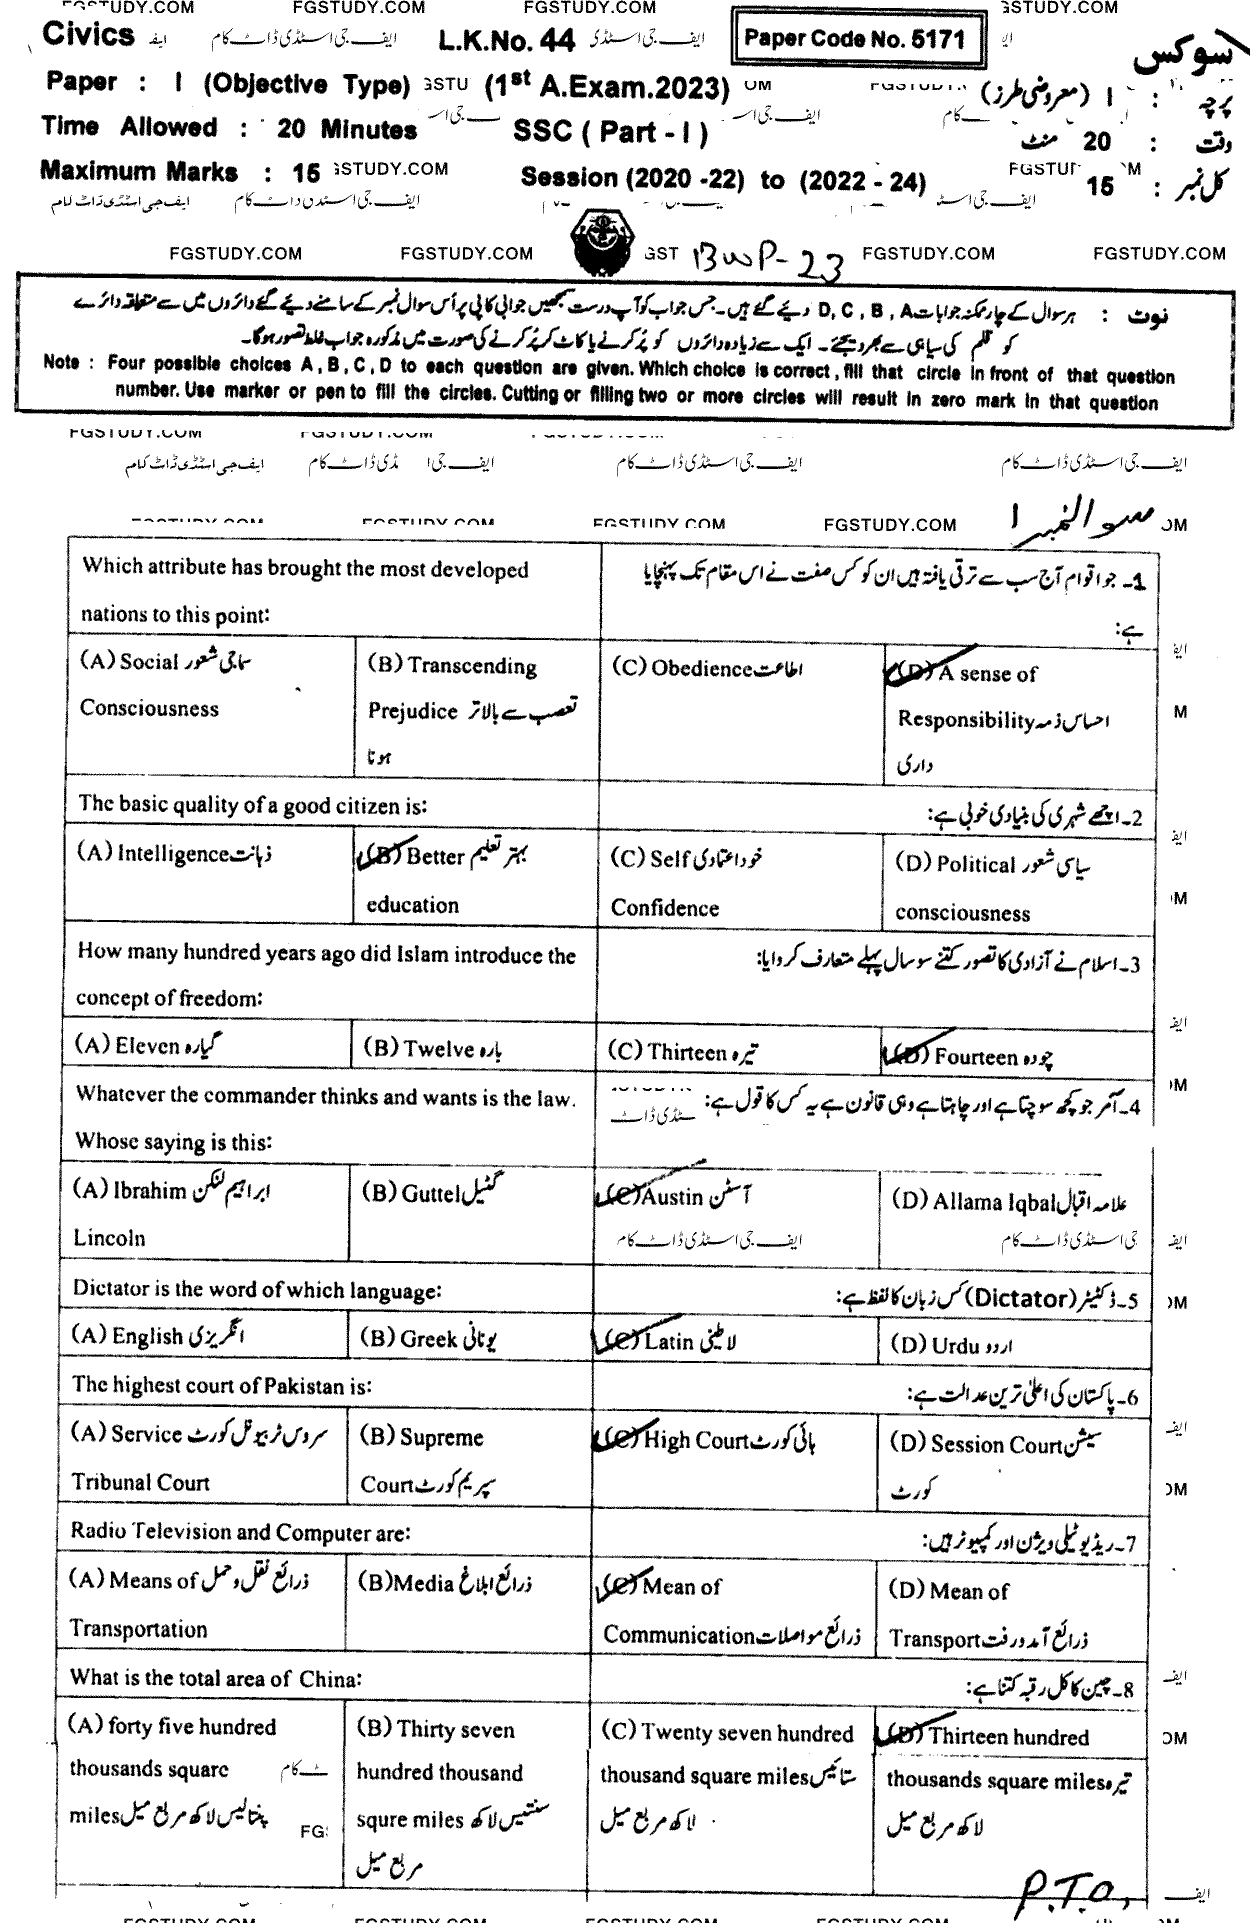 FGSTUDY.COM FGSTUDY.COM FGSTUDY.COM GSTUDY.COM
Civics ایف جی اسٹڈی ڈاٹ کام L.K.No. 44 ایف جی اسٹڈی Paper Code No. 5171 سوکس
Paper : I (Objective Type) GSTU (1st A.Exam.2023) OM FGSTUDY. پرچہ : I (معروضی طرز)
Time Allowed : 20 Minutes SSC ( Part - I ) وقت : 20 منٹ
Maximum Marks : 15 GSTUDY.COM Session (2020 -22) to (2022 - 24) FGSTU M کل نمبر : 15
ایف جی اسٹڈی ڈاٹ کام ایف جی اسٹڈی ڈاٹ کام ایف جی اسٹ
FGSTUDY.COM FGSTUDY.COM GST BWP-23 FGSTUDY.COM FGSTUDY.COM
نوٹ : ہر سوال کے چار ممکنہ جوابات D, C, B, A دیئے گئے ہیں۔ جس جواب کو آپ درست سمجھیں جوابی کاپی پر اُس سوال نمبر کے سامنے دیئے گئے دائروں میں سے متعلقہ دائرے
کو قلم کی سیاہی سے بھر دیجئے۔ ایک سے زیادہ دائروں کو پُر کرنے یا کاٹ کر پُر کرنے کی صورت میں مذکورہ جواب غلط تصور ہوگا۔
Note : Four possible choices A , B , C , D to each question are given. Which choice is correct , fill that circle in front of that question
number. Use marker or pen to fill the circles. Cutting or filling two or more circles will result in zero mark in that question
FGSTUDY.COM FGSTUDY.COM
ایف جی اسٹڈی ڈاٹ کام ایف جی ا ڈی ڈاٹ کام ایف جی اسٹڈی ڈاٹ کام ایف جی اسٹڈی ڈاٹ کام
FGSTUDY.COM FGSTUDY.COM FGSTUDY.COM FGSTUDY.COM سوال نمبر 1 OM
Which attribute has brought the most developed 1۔ جو اقوام آج سب سے ترقی یافتہ ہیں ان کو کس صفت نے اس مقام تک پہنچایا
nations to this point: ہے:
(A) Social سماجی شعور (B) Transcending (C) Obedience اطاعت (D) A sense of
Consciousness Prejudice تعصب سے بالاتر Responsibility احساس ذمہ
ہونا داری
The basic quality of a good citizen is: 2۔ اچھے شہری کی بنیادی خوبی ہے:
(A) Intelligence ذہانت (B) Better بہتر تعلیم (C) Self خود اعتمادی (D) Political سیاسی شعور
education Confidence consciousness
How many hundred years ago did Islam introduce the 3۔ اسلام نے آزادی کا تصور کتنے سو سال پہلے متعارف کروایا:
concept of freedom:
(A) Eleven گیارہ (B) Twelve بارہ (C) Thirteen تیرہ (D) Fourteen چودہ
Whatever the commander thinks and wants is the law. 4۔ آمر جو کچھ سوچتا ہے اور چاہتا ہے وہی قانون ہے یہ کس کا قول ہے:
Whose saying is this:
(A) Ibrahim ابراہیم لنکن (B) Guttel گٹیل (C) Austin آسٹن (D) Allama Iqbal علامہ اقبال
Lincoln ایف جی اسٹڈی ڈاٹ کام جی اسٹڈی ڈاٹ کام
Dictator is the word of which language: 5۔ ڈکٹیٹر (Dictator) کس زبان کا لفظ ہے:
(A) English انگریزی (B) Greek یونانی (C) Latin لاطینی (D) Urdu اردو
The highest court of Pakistan is: 6۔ پاکستان کی اعلیٰ ترین عدالت ہے:
(A) Service سروس ٹربیونل کورٹ (B) Supreme (C) High Court ہائی کورٹ (D) Session Court سیشن
Tribunal Court Court سپریم کورٹ کورٹ
Radio Television and Computer are: 7۔ ریڈیو ٹیلی ویژن اور کمپیوٹر ہیں:
(A) Means of ذرائع نقل و حمل (B) Media ذرائع ابلاغ (C) Mean of (D) Mean of
Transportation Communication ذرائع مواصلات Transport ذرائع آمدورفت
What is the total area of China: 8۔ چین کا کل رقبہ کتنا ہے:
(A) forty five hundred (B) Thirty seven (C) Twenty seven hundred (D) Thirteen hundred
thousands square hundred thousand thousand square miles ستائیس thousands square miles تیرہ
miles پنتالیس لاکھ مربع میل squre miles سنتیس لاکھ لاکھ مربع میل لاکھ مربع میل
مربع میل
P.T.O,
FGSTUDY.COM FGSTUDY.COM FGSTUDY.COM FGSTUDY.COM